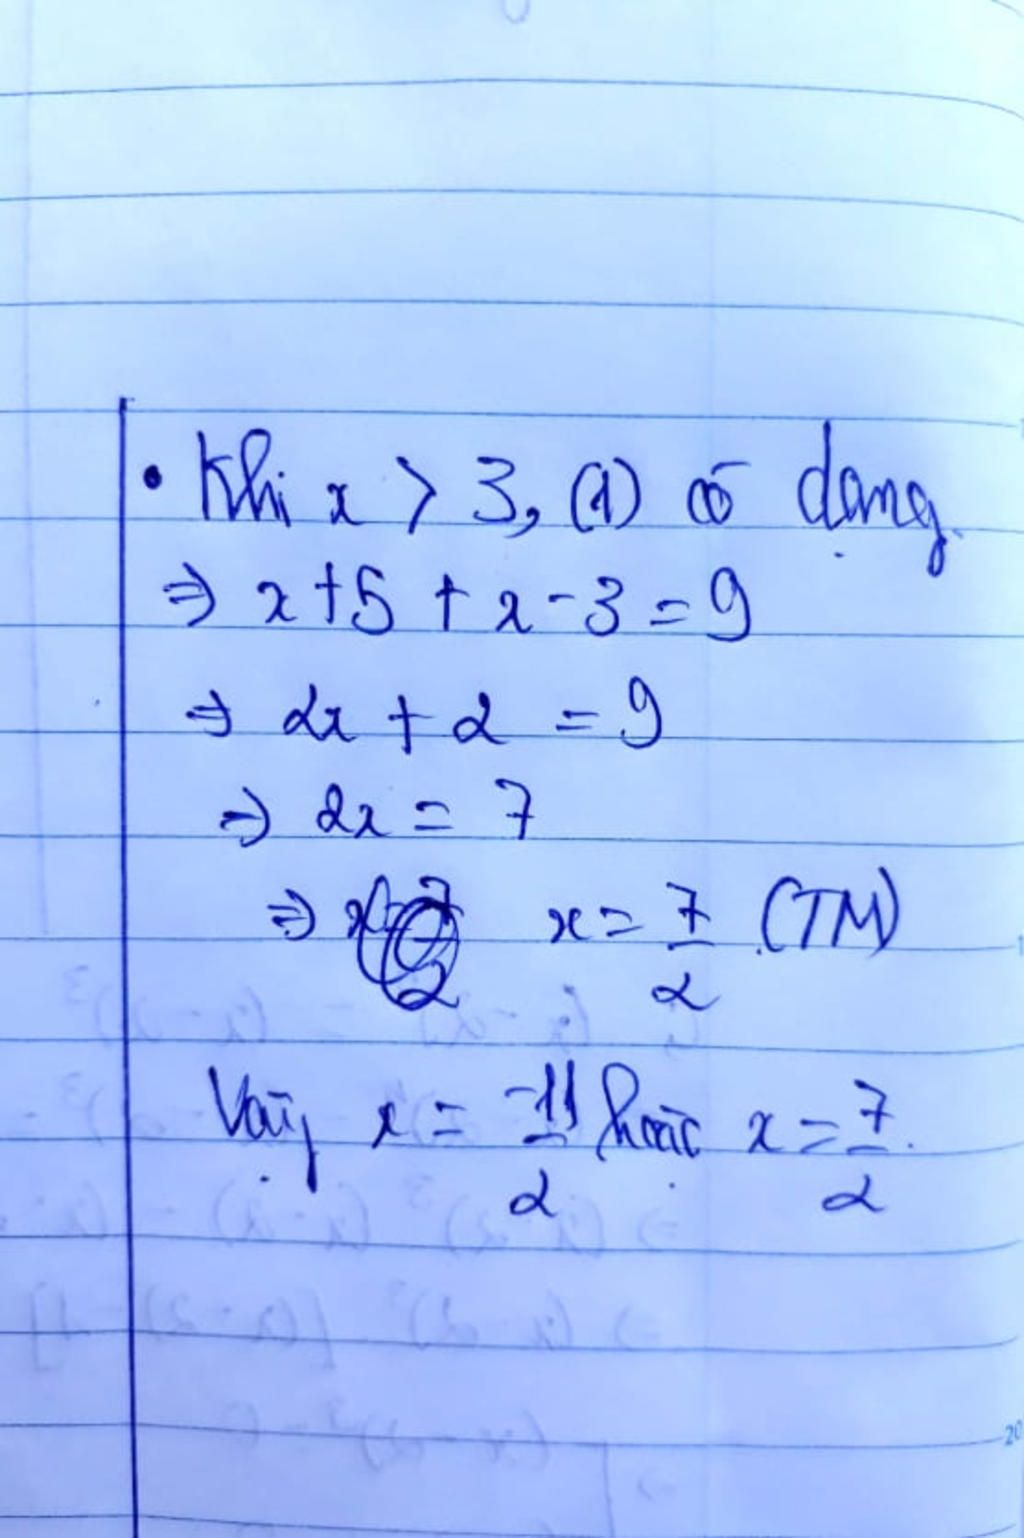 • Khi x > 3, (1) có dạng
⇒ x+5 + x-3 = 9
⇒ 2x + 2 = 9
⇒ 2x = 7
⇒ x = 7/2 (TM)
Vậy x = -11/2 hoặc x = 7/2.
20